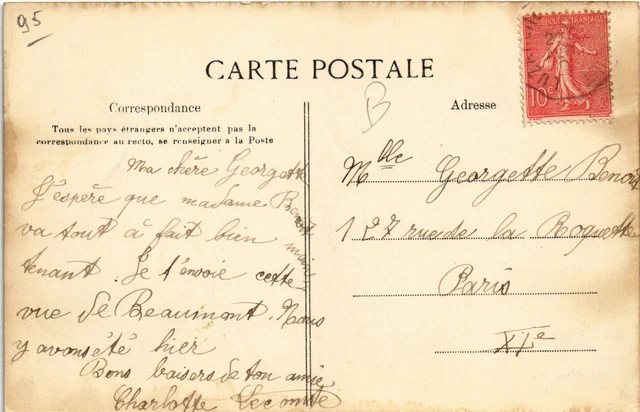 95
CARTE POSTALE
B
Correspondance
Adresse
Tous les pays étrangers n'acceptent pas la
correspondance au recto, se renseigner à la Poste
Ma chère Georgette
J'espère que madame Benoit
va tout à fait bien main
tenant. Je t'envoie cette
vue de Beaumont. Nous
y avons été hier
Bons baisers de ton amie
Charlotte Lecomte
Mlle Georgette Benoit
127 rue de la Roquette
Paris
XIe
10